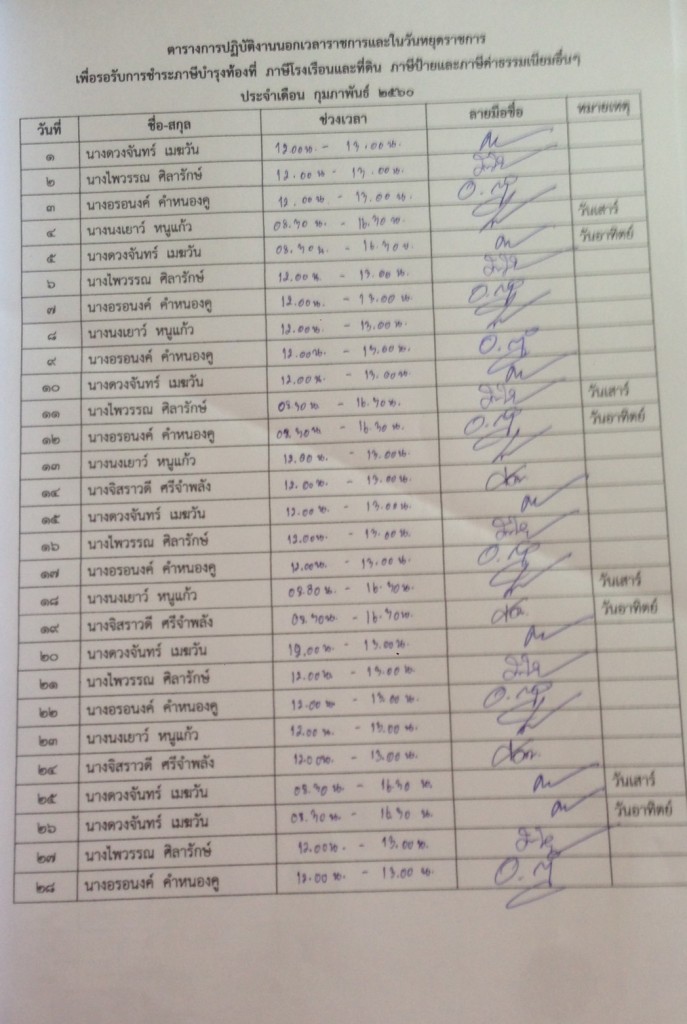 ตารางการปฏิบัติงานนอกเวลาราชการและในวันหยุดราชการ
เพื่อรอรับการชำระภาษีบำรุงท้องที่ ภาษีโรงเรือนและที่ดิน ภาษีป้ายและภาษีค่าธรรมเนียมอื่นๆ
ประจำเดือน กุมภาพันธ์ ๒๕๖๐
วันที่ ชื่อ-สกุล ช่วงเวลา ลายมือชื่อ หมายเหตุ
๑ นางดวงจันทร์ เมฆวัน 12.00น. - 13.00น.
๒ นางไพวรรณ ศิลารักษ์ 12.00น - 13.00น.
๓ นางอรอนงค์ คำหนองคู 12.00น. - 13.00น.
๔ นางนงเยาว์ หนูแก้ว 08.30น - 16.30น. วันเสาร์
๕ นางดวงจันทร์ เมฆวัน 08.30น - 16.30น. วันอาทิตย์
๖ นางไพวรรณ ศิลารักษ์ 12.00น. - 13.00น.
๗ นางอรอนงค์ คำหนองคู 12.00น. - 13.00น.
๘ นางนงเยาว์ หนูแก้ว 12.00น. - 13.00น.
๙ นางอรอนงค์ คำหนองคู 12.00น. - 13.00น.
๑๐ นางดวงจันทร์ เมฆวัน 12.00น. - 13.00น.
๑๑ นางไพวรรณ ศิลารักษ์ 08.30น - 16.30น. วันเสาร์
๑๒ นางอรอนงค์ คำหนองคู 08.30น - 16.30น. วันอาทิตย์
๑๓ นางนงเยาว์ หนูแก้ว 12.00น. - 13.00น.
๑๔ นางจิสราวดี ศรีจำพลัง 12.00น. - 13.00น.
๑๕ นางดวงจันทร์ เมฆวัน 12.00น. - 13.00น.
๑๖ นางไพวรรณ ศิลารักษ์ 12.00น. - 13.00น.
๑๗ นางอรอนงค์ คำหนองคู 12.00น. - 13.00น.
๑๘ นางนงเยาว์ หนูแก้ว 08.30น. - 16.30น. วันเสาร์
๑๙ นางจิสราวดี ศรีจำพลัง 08.30น. - 16.30น. วันอาทิตย์
๒๐ นางดวงจันทร์ เมฆวัน 12.00น. - 13.00น.
๒๑ นางไพวรรณ ศิลารักษ์ 12.00น - 13.00น.
๒๒ นางอรอนงค์ คำหนองคู 12.00น - 13.00น.
๒๓ นางนงเยาว์ หนูแก้ว 12.00น. - 13.00น.
๒๔ นางจิสราวดี ศรีจำพลัง 12.00น. - 13.00น.
๒๕ นางดวงจันทร์ เมฆวัน 08.30น. - 16.30น วันเสาร์
๒๖ นางดวงจันทร์ เมฆวัน 08.30น - 16.30น วันอาทิตย์
๒๗ นางไพวรรณ ศิลารักษ์ 12.00น. - 13.00น.
๒๘ นางอรอนงค์ คำหนองคู 12.00น. - 13.00น.